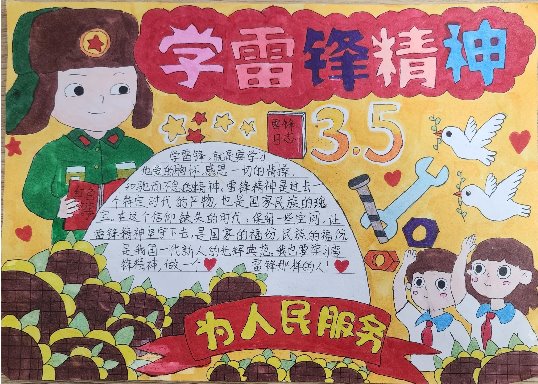 学雷锋精神
雷锋
日志
3.5
学雷锋，就是要学习
他舍己为怀，感恩一切的情操，
和艰而不息的精神，雷锋精神是过去一
个特定时代的产物，也是国家民族的瑰
宝。在这个信仰缺失的时代，保留一些空间，让
雷锋精神坚守下去，是国家的福份，民族的福份，
是我国一代新人的光辉典范。我也要学习雷
锋精神，做一个 雷锋那样的人！
为人民服务